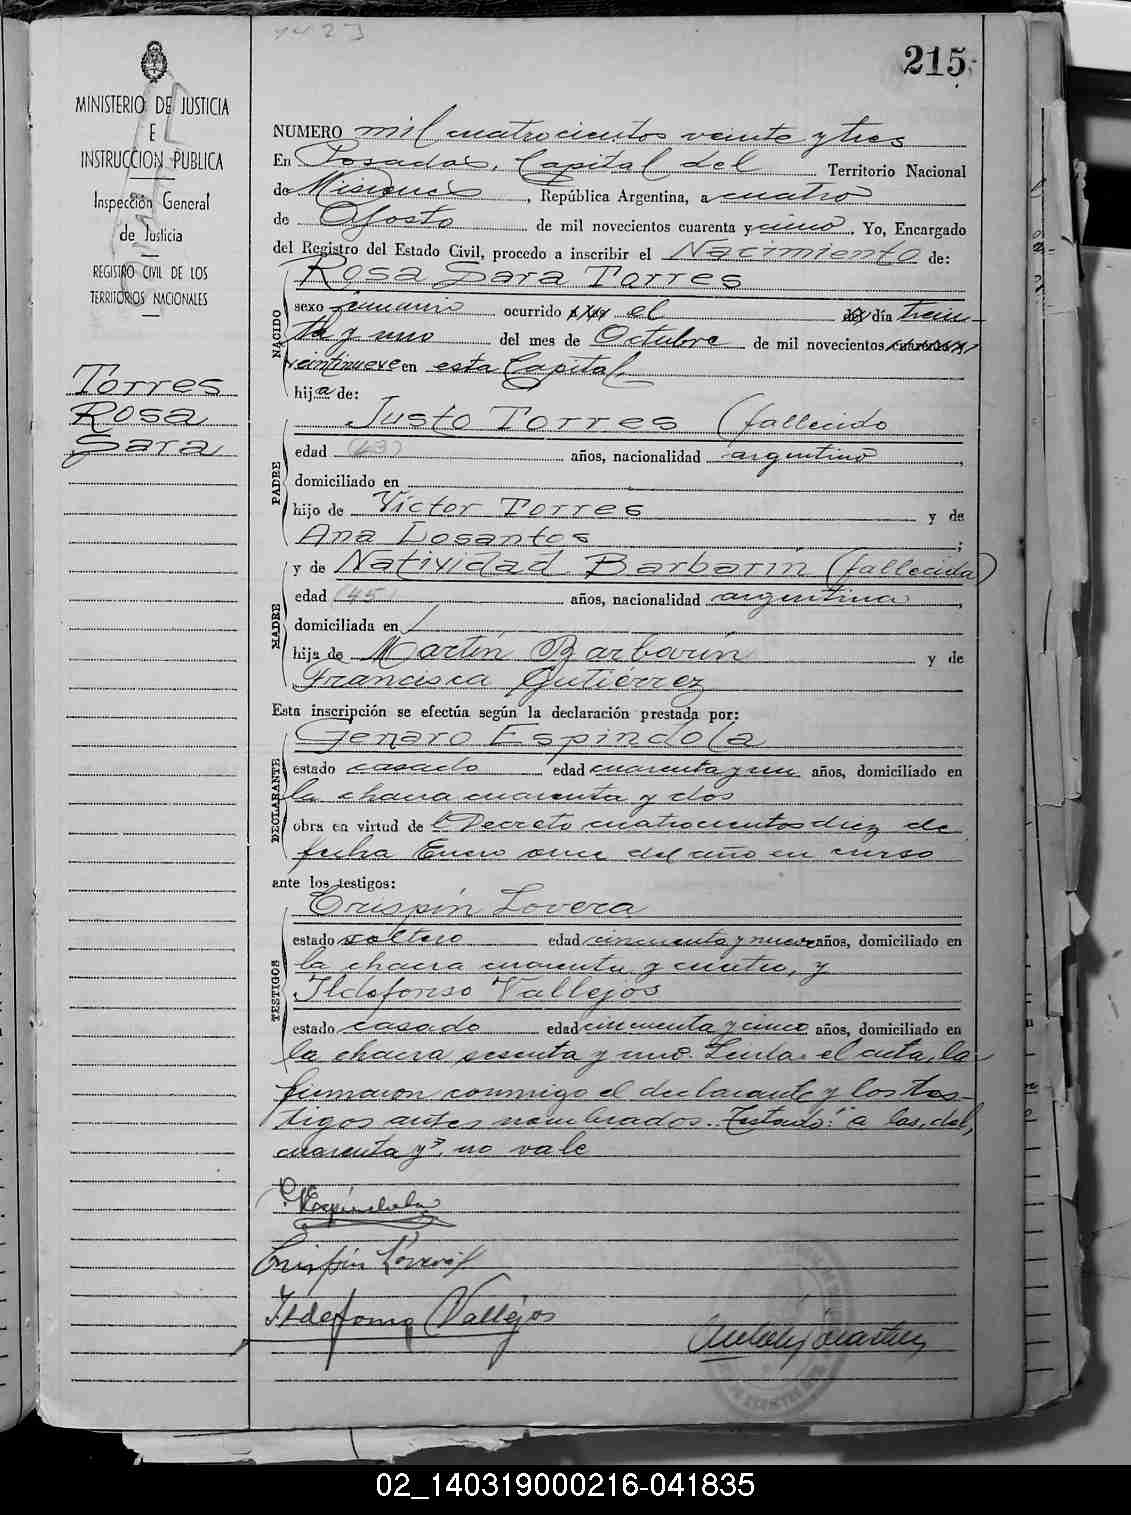 1423
215
MINISTERIO DE JUSTICIA
E
INSTRUCCION PUBLICA
Inspección General
de Justicia
REGISTRO CIVIL DE LOS
TERRITORIOS NACIONALES
Torres
Rosa
Sara
NUMERO mil cuatrocientos veinte y tres
En Posadas, Capital del Territorio Nacional
de Misiones, República Argentina, a cuatro
de Agosto de mil novecientos cuarenta y cinco. Yo, Encargado
del Registro del Estado Civil, procedo a inscribir el Nacimiento de:
NACIDO
Rosa Sara Torres
sexo femenino ocurrido a las el del día trein-
ta y uno del mes de Octubre de mil novecientos cuarenta y
veintinueve en esta Capital
hija de:
PADRE
Justo Torres (fallecido
edad (63) años, nacionalidad argentino,
domiciliado en
hijo de Víctor Torres y de
Ana Losantos;
MADRE
y de Natividad Barbarín (fallecida)
edad (45) años, nacionalidad argentina,
domiciliada en
hija de Martín Barbarín y de
Francisca Gutiérrez
Esta inscripción se efectúa según la declaración prestada por:
DECLARANTE
Genaro Espíndola
estado casado edad cuarenta y un años, domiciliado en
la chacra cuarenta y dos
obra en virtud de l Decreto cuatrocientos diez de
fecha Enero once del año en curso
ante los testigos:
TESTIGOS
Crispín Lovera
estado soltero edad cincuenta y nueve años, domiciliado en
la chacra cuarenta y cuatro, y
Ildefonso Vallejos
estado casado edad cincuenta y cinco años, domiciliado en
la chacra sesenta y uno. Leída el acta, la
firmaron conmigo el declarante y los tes-
tigos antes nombrados. Testado: "a las, del,
cuarenta y" no vale
G. Espíndola
Crispín Lovera
Ildefonso Vallejos
02_140319000216-041835